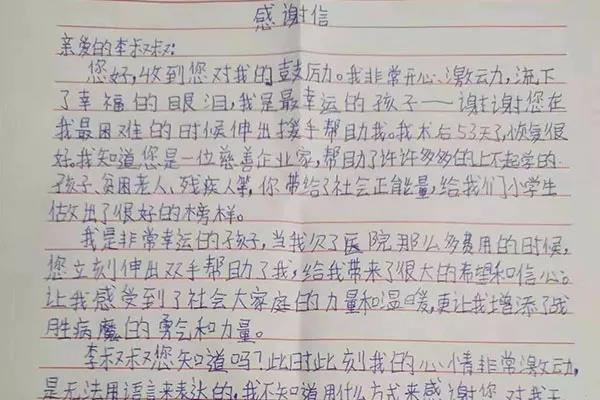 感谢信
亲爱的李叔叔:
您好,收到您对我的鼓励。我非常开心、激动,流下
了幸福的眼泪,我是最幸运的孩子——谢谢您在
我最困难的时候伸出援手帮助我。我术后53天了,恢复很
好。我知道您是一位慈善企业家,帮助了许许多多的上不起学的
孩子、贫困老人、残疾人等,你带给了社会正能量,给我们小学生
做出了很好的榜样。
我是非常幸运的孩子,当我欠了医院那么多费用的时候,
您立刻伸出双手帮助了我,给我带来了很大的希望和信心。
让我感受到了社会大家庭的力量和温暖,更让我增添了战
胜病魔的勇气和力量。
李叔叔您知道吗?此时此刻我的心情非常激动,
是无法用语言来表达的,我不知道用什么方式来感谢您对我